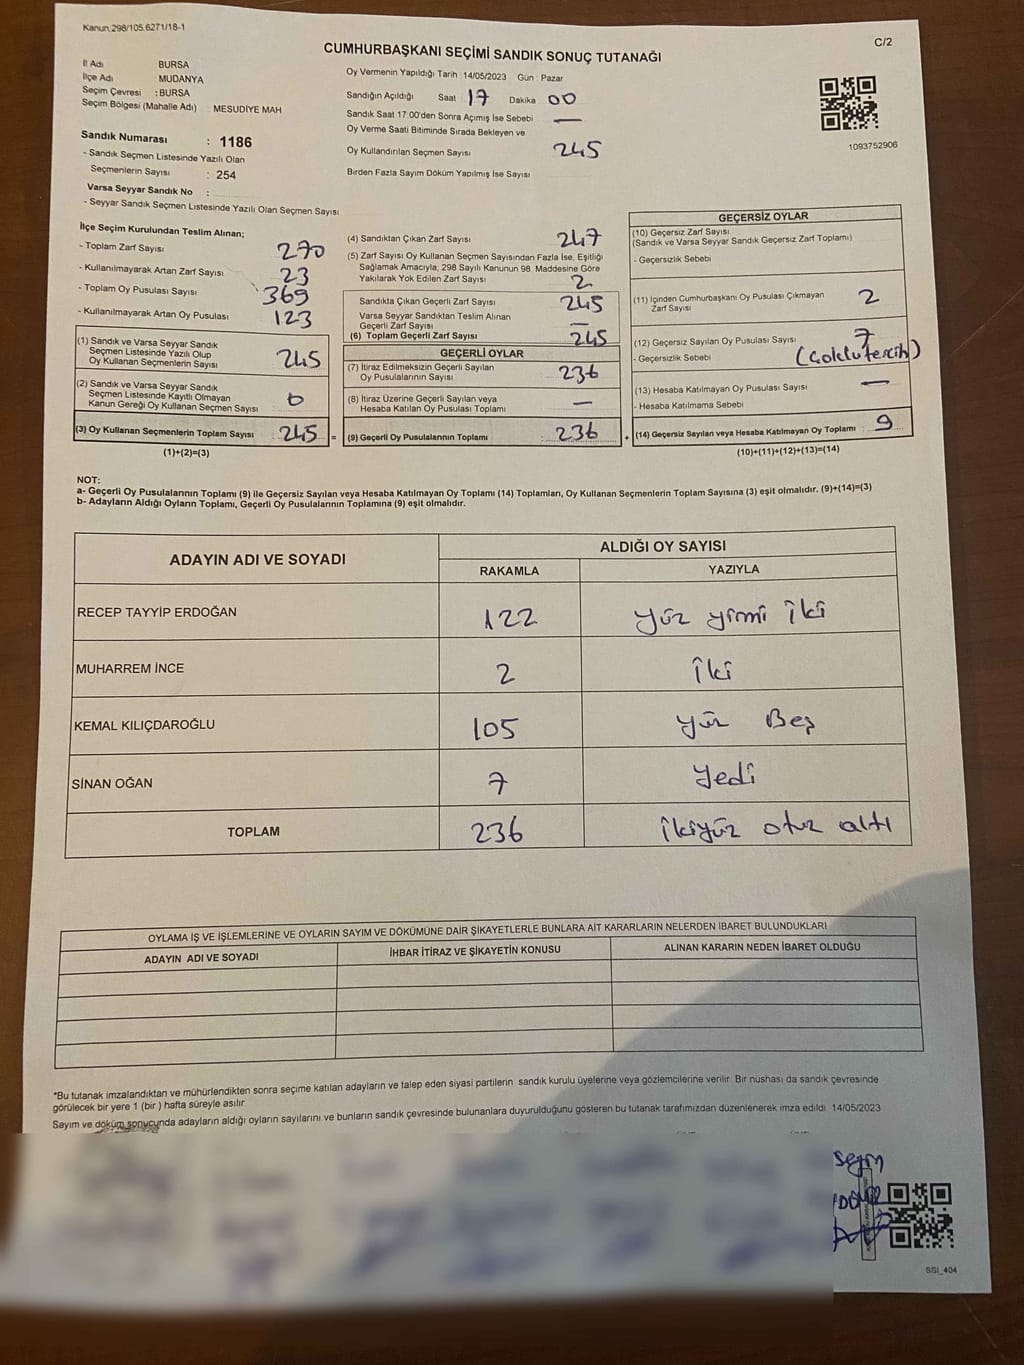 Kanun.298/105.6271/18-1
C/2
CUMHURBAŞKANI SEÇİMİ SANDIK SONUÇ TUTANAĞI
İl Adı : BURSA
İlçe Adı : MUDANYA
Seçim Çevresi : BURSA
Seçim Bölgesi (Mahalle Adı) : MESUDİYE MAH
Sandık Numarası : 1186
- Sandık Seçmen Listesinde Yazılı Olan
Seçmenlerin Sayısı : 254
Varsa Seyyar Sandık No :
- Seyyar Sandık Seçmen Listesinde Yazılı Olan Seçmen Sayısı
Oy Vermenin Yapıldığı Tarih :14/05/2023 Gün : Pazar
Sandığın Açıldığı Saat 17 Dakika 00
Sandık Saat 17.00'den Sonra Açımış İse Sebebi —
Oy Verme Saati Bitiminde Sırada Bekleyen ve
Oy Kullandırılan Seçmen Sayısı 245
Birden Fazla Sayım Döküm Yapılmış İse Sayısı
1093752906
İlçe Seçim Kurulundan Teslim Alınan;
- Toplam Zarf Sayısı 270
- Kullanılmayarak Artan Zarf Sayısı 23
- Toplam Oy Pusulası Sayısı 369
- Kullanılmayarak Artan Oy Pusulası 123
(1) Sandık ve Varsa Seyyar Sandık
Seçmen Listesinde Yazılı Olup
Oy Kullanan Seçmenlerin Sayısı 245
(2) Sandık ve Varsa Seyyar Sandık
Seçmen Listesinde Kayıtlı Olmayan
Kanun Gereği Oy Kullanan Seçmen Sayısı 0
(3) Oy Kullanan Seçmenlerin Toplam Sayısı : 245 =
(1)+(2)=(3)
(4) Sandıktan Çıkan Zarf Sayısı 247
(5) Zarf Sayısı Oy Kullanan Seçmen Sayısından Fazla İse, Eşitliği
Sağlamak Amacıyla, 298 Sayılı Kanunun 98. Maddesine Göre
Yakılarak Yok Edilen Zarf Sayısı 2
Sandıkta Çıkan Geçerli Zarf Sayısı 245
Varsa Seyyar Sandıktan Teslim Alınan
Geçerli Zarf Sayısı —
(6) Toplam Geçerli Zarf Sayısı 245
GEÇERLİ OYLAR
(7) İtiraz Edilmeksizin Geçerli Sayılan
Oy Pusulalarının Sayısı 236
(8) İtiraz Üzerine Geçerli Sayılan veya
Hesaba Katılan Oy Pusulası Toplamı —
(9) Geçerli Oy Pusulalarının Toplamı : 236 +
GEÇERSİZ OYLAR
(10) Geçersiz Zarf Sayısı
(Sandık ve Varsa Seyyar Sandık Geçersiz Zarf Toplamı)
- Geçersizlik Sebebi
(11) İçinden Cumhurbaşkanı Oy Pusulası Çıkmayan
Zarf Sayısı 2
(12) Geçersiz Sayılan Oy Pusulası Sayısı 7
- Geçersizlik Sebebi (Çoklu tercih)
(13) Hesaba Katılmayan Oy Pusulası Sayısı —
- Hesaba Katılmama Sebebi
(14) Geçersiz Sayılan veya Hesaba Katılmayan Oy Toplamı : 9
(10)+(11)+(12)+(13)=(14)
NOT:
a- Geçerli Oy Pusulalarının Toplamı (9) ile Geçersiz Sayılan veya Hesaba Katılmayan Oy Toplamı (14) Toplamları, Oy Kullanan Seçmenlerin Toplam Sayısına (3) eşit olmalıdır. (9)+(14)=(3)
b- Adayların Aldığı Oyların Toplamı, Geçerli Oy Pusulalarının Toplamına (9) eşit olmalıdır.
ADAYIN ADI VE SOYADI ALDIĞI OY SAYISI
RAKAMLA YAZIYLA
RECEP TAYYİP ERDOĞAN 122 yüz yirmi iki
MUHARREM İNCE 2 iki
KEMAL KILIÇDAROĞLU 105 yüz Beş
SİNAN OĞAN 7 Yedi
TOPLAM 236 ikiyüz otuz altı
OYLAMA İŞ VE İŞLEMLERİNE VE OYLARIN SAYIM VE DÖKÜMÜNE DAİR ŞİKAYETLERLE BUNLARA AİT KARARLARIN NELERDEN İBARET BULUNDUKLARI
ADAYIN ADI VE SOYADI İHBAR İTİRAZ VE ŞİKAYETİN KONUSU ALINAN KARARIN NEDEN İBARET OLDUĞU
*Bu tutanak imzalandıktan ve mühürlendikten sonra seçime katılan adayların ve talep eden siyasi partilerin sandık kurulu üyelerine veya gözlemcilerine verilir. Bir nüshası da sandık çevresinde
görülecek bir yere 1 (bir ) hafta süreyle asılır.
Sayım ve döküm sonucunda adayların aldığı oyların sayılarını ve bunların sandık çevresinde bulunanlara duyurulduğunu gösteren bu tutanak tarafımızdan düzenlenerek imza edildi 14/05/2023
SSI_404